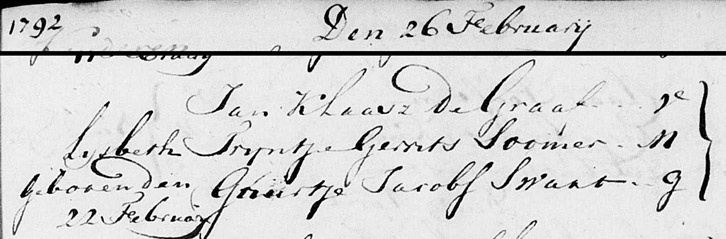 1792 Den 26 February
Jan Klaasz De Graaf . . . Ve
Lysbeth Tryntje Gerrits Soomer . . M
geboren den Guurtje Jacobs Swart . . g
22 February